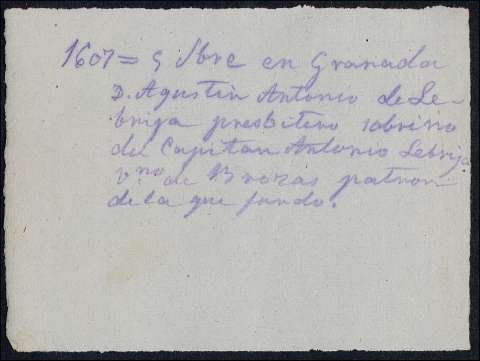 1607= 5 Sbre en Granada
D. Agustin Antonio de Le-
briga presbitero sobrino
del Capitan Antonio Lebrija
vno de Brozas patron
de la que fundo.